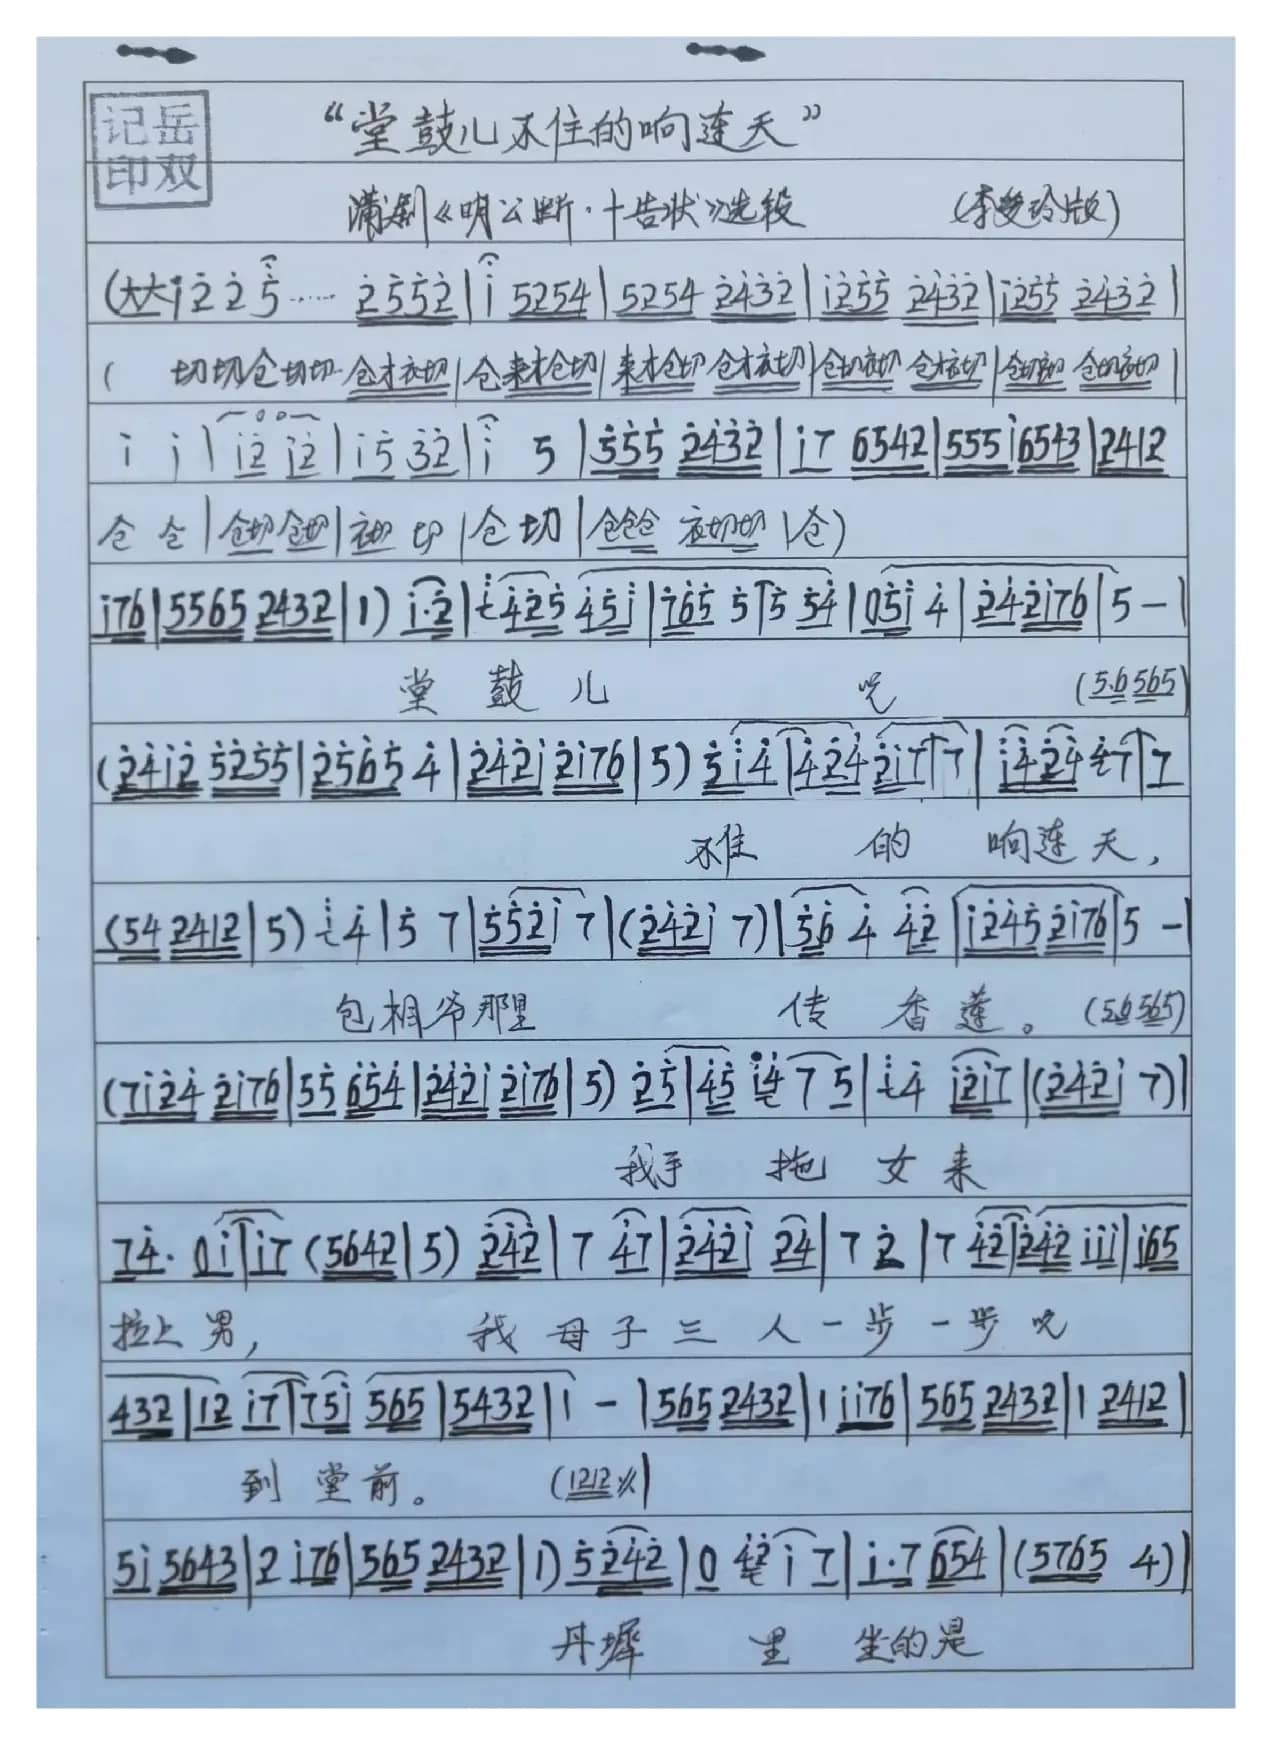 记岳
印双
“堂鼓儿不住的响连天”
蒲剧《明公断·十告状》选段 (李雯玲版)
(大大i̇ 2̇ 2̇ 5̇ ······ 2̇5̇5̇2̇ | i̇ 5254 | 5254 2̇4̇3̇2̇ | i̇2̇5̇5̇ 2̇4̇3̇2̇ | i̇2̇5̇5̇ 2̇4̇3̇2̇ |
( 切切仓切切 仓才衣切 | 仓来才仓切 | 来才仓切 仓才衣切 | 仓切衣切 仓才衣切 | 仓切衣切 仓切衣切 |
i̇ i̇ | i̇2̇ i̇2̇ | i̇5̇ 3̇2̇ | i̇ 5 | 5̇5̇5̇ 2̇4̇3̇2̇ | i̇7 6542 | 555i̇ 6543 | 2412
仓 仓 | 仓切 仓切 | 衣切 切 | 仓 切 | 仓仓仓 衣切切 | 仓)
i̇76 | 5565 2432 | 1) i̇·2̇ | 4̇2̇5̇ 4̇5̇i̇ | 7̇6̇5̇ 5̇ | 5̇ 5̇4̇ | 05̇i̇ 4̇ | 2̇4̇2̇i̇76 | 5 - |
堂 鼓 儿 呃 (5·6 565)
(2̇4̇i̇2̇ 5̇2̇5̇5̇ | 2̇5̇6̇5̇ 4̇ | 2̇4̇2̇i̇ 2̇i̇76 | 5) 5̇i̇4̇ | 4̇2̇4̇ 2̇i̇7 | 7 | i̇4̇2̇4̇ 4̇7 | 7
不住 的 响连天,
(54 2412 | 5) 4̇ | 5̇ 7 | 5̇5̇2̇i̇ 7 | (2̇4̇2̇i̇ 7) | 5̇6̇ 4̇ 4̇2̇ | i̇2̇4̇5̇ 2̇i̇76 | 5 - |
包相爷那里 传 香 莲。 (56 565)
(7i̇2̇4̇ 2̇i̇76 | 5̇5̇ 6̇5̇4̇ | 2̇4̇2̇i̇ 2̇i̇76 | 5) 2̇5̇ | 4̇5̇ i̇4̇ 7 5 | 4̇ i̇2̇i̇7 | (2̇4̇2̇i̇ 7) |
我手 拖 女 来
74̇· 0i̇ | i̇7 (5642 | 5) 2̇4̇2̇ | 7 4̇7 | 2̇4̇2̇i̇ 2̇4̇ | 7 2̇ | 7 4̇2̇ | 2̇4̇2̇ i̇i̇i̇ | i̇65
拉上男, 我 母 子 三 人 一 步 一 步 呃
432 | 12 i̇7 | 75i̇ 565 | 5432 | 1 - | 565 2432 | 1 i̇i̇76 | 565 2432 | 1 2412 |
到 堂 前。 (1212 ⁒ |
5i̇ 5643 | 2 i̇76 | 565 2432 | 1) 5̇2̇4̇2̇ | 0 4̇2̇ i̇ 7 | i̇·7 654 | (5765 4) |
丹墀 里 坐的是